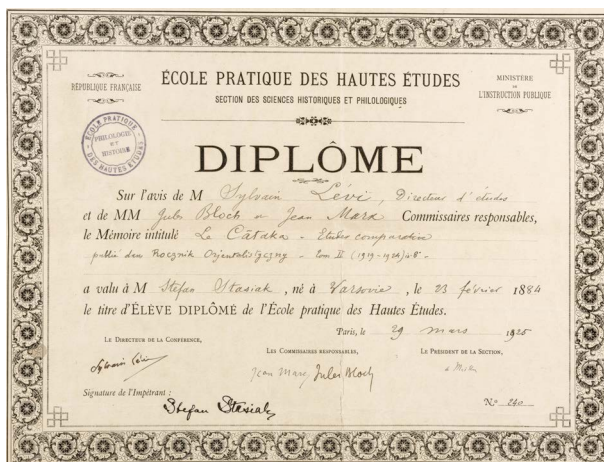 RÉPUBLIQUE FRANÇAISE
ÉCOLE PRATIQUE DES HAUTES ÉTUDES
SECTION DES SCIENCES HISTORIQUES ET PHILOLOGIQUES
MINISTÈRE
DE
L'INSTRUCTION PUBLIQUE
ÉCOLE PRATIQUE
PHILOLOGIE
ET
HISTOIRE
DES HAUTES ÉTUDES
DIPLÔME
Sur l'avis de M Sylvain Lévi, Directeur d'études
et de MM Jules Bloch et Jean Marx Commissaires responsables,
le Mémoire intitulé Le Cātaka - Etude comparative
publié dans Rocznik Orjentalistyczny - tom II (1919-1924)
a valu à M Stefan Stasiak, né à Varsovie, le 23 février 1884
le titre d'ÉLÈVE DIPLÔMÉ de l'École pratique des Hautes Études.
Paris, le 29 mars 1925
LE DIRECTEUR DE LA CONFÉRENCE,
LES COMMISSAIRES RESPONSABLES,
LE PRÉSIDENT DE LA SECTION,
Sylvain Lévi
Jean Marx, Jules Bloch
Signature de l'Impétrant :
Stefan Stasiak
N° 240